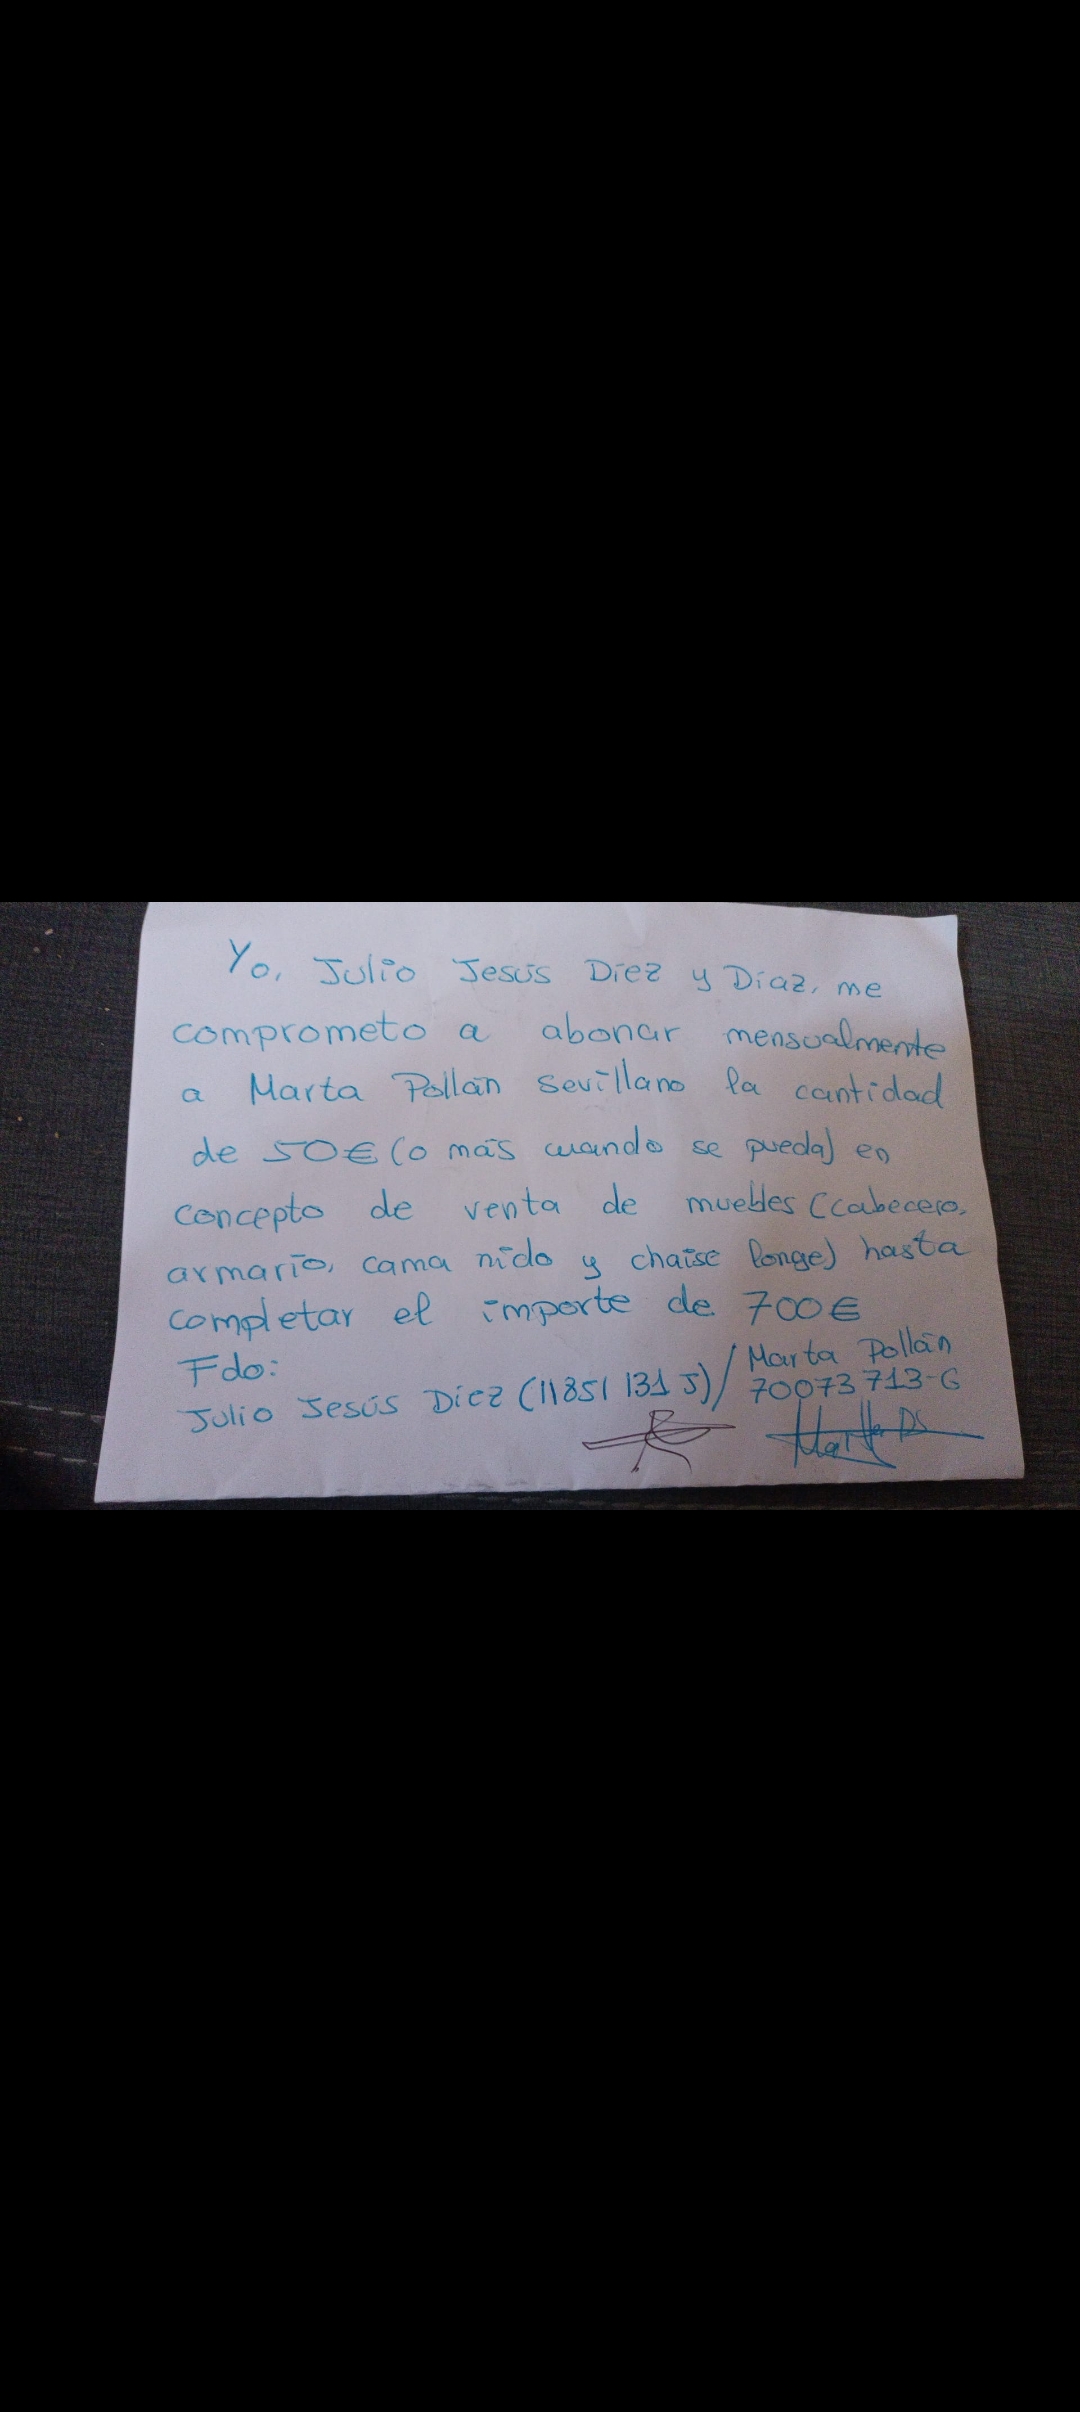 Yo, Julio Jesús Díez y Díaz, me
comprometo a abonar mensualmente
a Marta Pollán Sevillano la cantidad
de 50€ (o más cuando se pueda) en
concepto de venta de muebles (cabecero,
armario, cama nido y chaise longe) hasta
completar el importe de 700€
Fdo:
Julio Jesús Díez (11851131J) / Marta Pollán
70073713-G
Marta PS